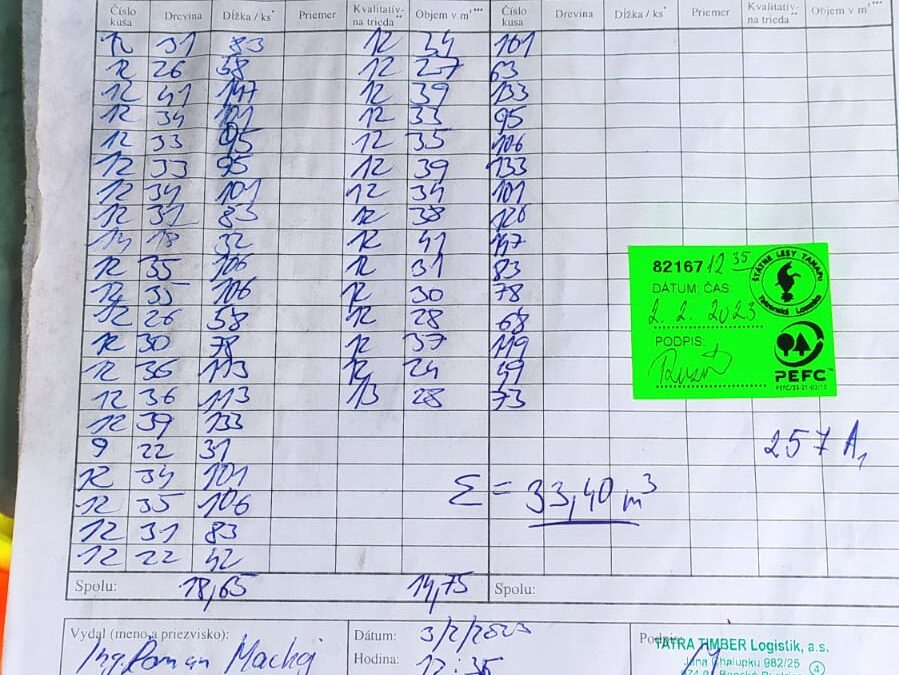 Číslo kusa Drevina Dĺžka / ks* Priemer Kvalitatív- na trieda** Objem v m³*** Číslo kusa Drevina Dĺžka / ks* Priemer Kvalitatív- na trieda** Objem v m³***
12 31 83 12 34 101
12 26 58 12 27 63
12 41 147 12 39 133
12 34 101 12 33 95
12 33 95 12 35 106
12 33 95 12 39 133
12 34 101 12 34 101
12 31 83 12 38 126
14 18 32 12 41 147
12 35 106 12 31 83
12 35 106 12 30 78
12 26 58 12 28 68
12 30 78 12 37 119
12 36 113 12 24 49
12 36 113 13 28 73
12 39 133
9 22 31
12 34 101
12 35 106
12 31 83
12 22 42
Σ = 33,40 m³
257 A₁
82167 12 35
DÁTUM, ČAS:
2. 2. 2023
PODPIS:
ŠTÁTNE LESY TANAPu
Tatranská Lomnica
PEFC
Spolu: 18,65 14,75 Spolu:
Vydal (meno a priezvisko):
Ing. Roman Mackoj
Dátum: 3/2/2023
Hodina: 12:35
TATRA TIMBER Logistik, a.s.
Jána Chalupku 982/25
4